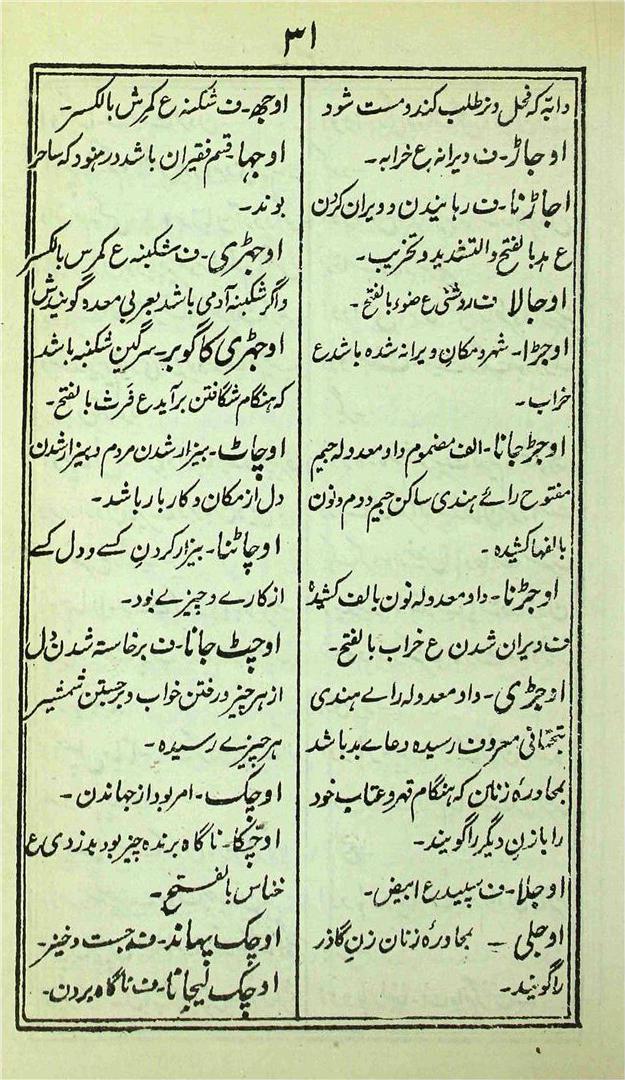 ۳۱
دابّہ کہ فحل و نر طلب کند و مست شود
اوجاڑ۔ ف ویرانہ ع خرابہ۔
اجاڑنا۔ ف رہانیدن و ویران کردن
ع ہد بالفتح والتشدید و تخریب۔
اوجالا ف روشنی ع ضوء بالفتح۔
اوجڑا۔ شہر و مکانِ ویرانہ شدہ باشد ع
خراب۔
اوجڑ جانا۔ الف مضموم واو معدولہ جیم
مفتوح رائے ہندی ساکن جیم دوم و نون
بالفہا کشیدہ۔
اوجڑنا۔ واو معدولہ نون بالف کشیدہ
ف ویران شدن ع خراب بالفتح۔
اوجڑی۔ واو معدولہ رائے ہندی
بتحتانی معروف رسیدہ دعاے بد باشد
بمحاورۂ زنان کہ ہنگام قہر و عتاب خود
را با زنِ دیگر را گویند۔
اوجلا۔ ف سپید ع ابیض۔
اوجلی ۔ بمحاورۂ زنان زنِ گاذر
را گویند۔
اوجھ۔ ف شکنبہ ع کرش بالکسر۔
اوجہا۔ قسم فقیران باشد در ہنود کہ ساحر
بوند۔
اوجہڑی۔ ف شکنبہ ع کرش بالکسر
و اگر شکنبہ آدمی باشد بعربی معدہ گویندش
اوجہڑی کا گوبر۔ سرگینِ شکنبہ باشد
کہ ہنگام شگافتن برآید ع فَرث بالفتح۔
اوچاٹ۔ بیزار شدن مردم و بیزار شدن
دل از مکان و کاربار باشد۔
اوچاٹنا۔ بیزار کردنِ کسے و دل کسے
از کارے و چیزے بود۔
اوچٹ جانا۔ ف برخاستہ شدن دل
از ہر چیز و رفتن خواب و برجستن شمشیر
بر چیزے رسیدہ۔
اوچک۔ امر بود از جہاندن۔
اوچّکا۔ ناگاہ برندہ چیز بود بدزدی ع
خناس بالفتح۔
اوچک پہاند۔ ف جست و خیز۔
اوچک لیجانا۔ ف ناگاہ بردن۔